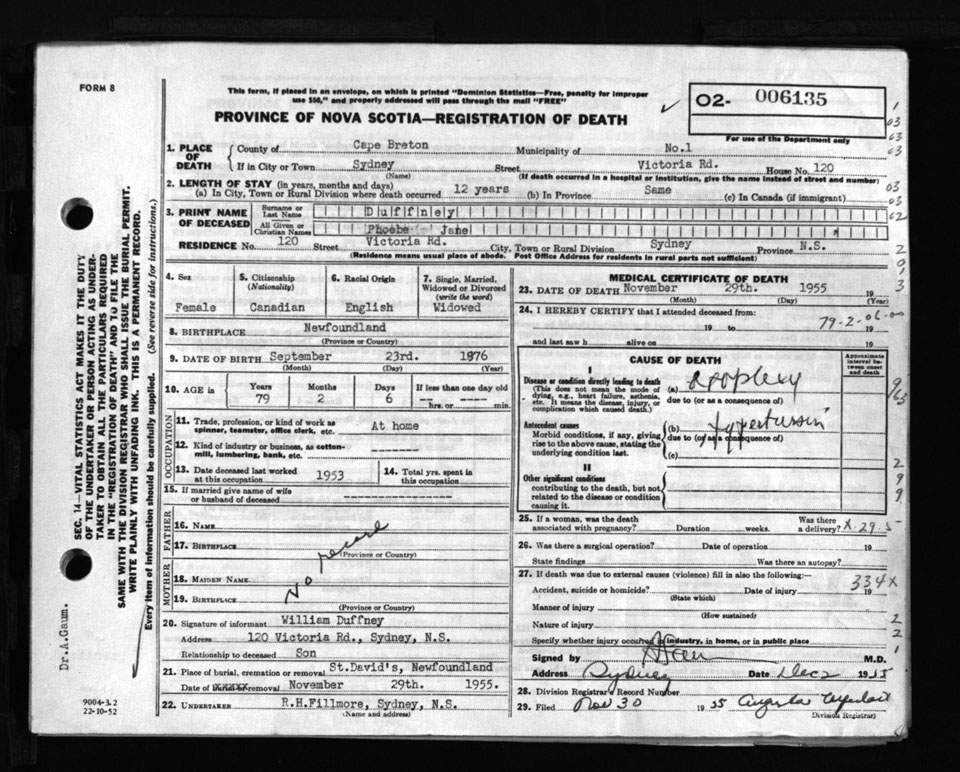 FORM 8
This form, if placed in an envelope, on which is printed "Dominion Statistics—Free, penalty for improper
use $50," and properly addressed will pass through the mail "FREE"
PROVINCE OF NOVA SCOTIA—REGISTRATION OF DEATH
02- 006135
For use of the Department only
1. PLACE OF DEATH County of Cape Breton Municipality of No.1
If in City or Town Sydney Street Victoria Rd. House No. 120
(Name) (If death occurred in a hospital or institution, give the name instead of street and number)
2. LENGTH OF STAY (in years, months and days)
(a) In City, Town or Rural Division where death occurred 12 years (b) In Province Same (c) In Canada (if immigrant)
3. PRINT NAME OF DECEASED Surname or Last Name Duffney
All Given or Christian Names Phoebe Jane
RESIDENCE No. 120 Street Victoria Rd. City, Town or Rural Division Sydney Province N.S.
(Residence means usual place of abode. Post Office Address for residents in rural parts not sufficient)
4. Sex Female
5. Citizenship (Nationality) Canadian
6. Racial Origin English
7. Single, Married, Widowed or Divorced (write the word) Widowed
8. BIRTHPLACE Newfoundland
(Province or Country)
9. DATE OF BIRTH September 23rd. 1876
(Month) (Day) (Year)
10. AGE in Years Months Days If less than one day old
79 2 6 hrs. or min.
OCCUPATION
11. Trade, profession, or kind of work as spinner, teamster, office clerk, etc. At home
12. Kind of industry or business, as cotten-mill, lumbering, bank, etc. -------
13. Date deceased last worked at this occupation 1953
14. Total yrs. spent in this occupation
15. If married give name of wife or husband of deceased ---------------
FATHER
16. NAME
17. BIRTHPLACE
(Province or Country)
No record
MOTHER
18. MAIDEN NAME
19. BIRTHPLACE
(Province or Country)
20. Signature of informant William Duffney
Address 120 Victoria Rd., Sydney, N.S.
Relationship to deceased Son
21. Place of burial, cremation or removal St.David's, Newfoundland
Date of removal November 29th. 1955.
22. UNDERTAKER R.H.Fillmore, Sydney, N.S.
(Name and address)
MEDICAL CERTIFICATE OF DEATH
23. DATE OF DEATH November 29th. 1955 19
(Month) (Day) (Year)
24. I HEREBY CERTIFY that I attended deceased from:
19 to 79-2-06-00 19
and last saw h alive on 19
CAUSE OF DEATH
Approximate interval between onset and death
I
Disease or condition directly leading to death
(This does not mean the mode of dying, e.g., heart failure, asthenia, etc. It means the disease, injury, or complication which caused death.)
(a) apoplexy
due to (or as a consequence of)
Antecedent causes
Morbid conditions, if any, giving rise to the above cause, stating the underlying condition last.
(b) Hypertension
due to (or as a consequence of)
(c)
II
Other significant conditions
contributing to the death, but not related to the disease or condition causing it.
25. If a woman, was the death associated with pregnancy? Duration weeks. Was there a delivery? X-29-5
26. Was there a surgical operation? Date of operation 19
State findings Was there an autopsy?
27. If death was due to external causes (violence) fill in also the following:—
334X
Accident, suicide or homicide? Date of injury 19
(State which)
Manner of injury
(How sustained)
Nature of injury
Specify whether injury occurred in industry, in home, or in public place
Signed by M.D.
Address Sydney Date Dec 2 1955
28. Division Registrar's Record Number
29. Filed Nov 30 1955 Augusta
Division Registrar)
SEC. 14—VITAL STATISTICS ACT MAKES IT THE DUTY
OF THE UNDERTAKER OR PERSON ACTING AS UNDER-
TAKER TO OBTAIN ALL THE PARTICULARS REQUIRED
IN THE "REGISTRATION OF DEATH" AND TO FILE THE
SAME WITH THE DIVISION REGISTRAR WHO SHALL ISSUE THE BURIAL PERMIT.
WRITE PLAINLY WITH UNFADING INK. THIS IS A PERMANENT RECORD.
Every item of information should be carefully supplied. (See reverse side for instructions.)
Dr.A.Gaum.
9004-3.2
22-10-52